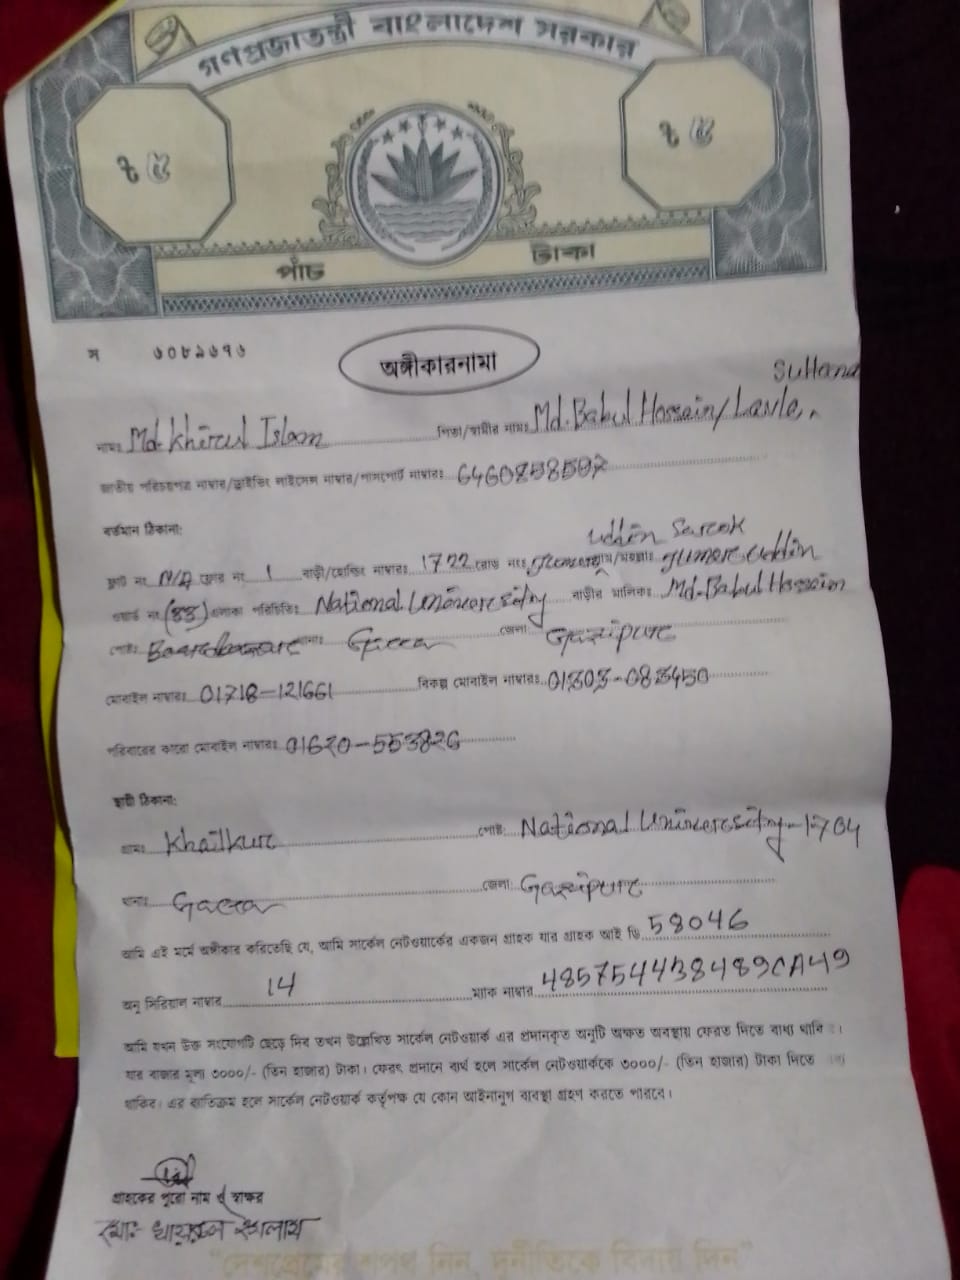 গণপ্রজাতন্ত্রী বাংলাদেশ সরকার
৳ ৫ ৳ ৫
পাঁচ টাকা
স ৬০৮৯৬৭৬
অঙ্গীকারনামা
Sultana
নামঃ Md. Khirul Islam পিতা/স্বামীর নামঃ Md. Babul Hossain/
জাতীয় পরিচয়পত্র নাম্বার/ড্রাইভিং লাইসেন্স নাম্বার/পাসপোর্ট নাম্বারঃ 6460858597
বর্তমান ঠিকানা:
uddin Sarcok
ফ্লাট নং N/A ফ্লোর নং 1 বাড়ী/হোল্ডিং নাম্বারঃ 1722 রোড নংঃ গ্রাম/মহল্লাঃ uddin
ওয়ার্ড নং (33) এলাকা পরিচিতিঃ National University বাড়ীর মালিকঃ Md. Babul Hossain
পোষ্টঃ Boardbazare থানাঃ Gacca জেলা: Gazipure
মোবাইল নাম্বারঃ 01718-121661 বিকল্প মোবাইল নাম্বারঃ 01303-083450
পরিবারের কারো মোবাইল নাম্বারঃ 01620-553826
স্থায়ী ঠিকানা:
গ্রামঃ Khailkur পোষ্ট: National University-1704
থানাঃ Gacca জেলা: Gazipure
আমি এই মর্মে অঙ্গীকার করিতেছি যে, আমি সার্কেল নেটওয়ার্কের একজন গ্রাহক যার গ্রাহক আই ডি 58046
অনু সিরিয়াল নাম্বার 14 ম্যাক নাম্বার 485754438489CA49
আমি যখন উক্ত সংযোগটি ছেড়ে দিব তখন উল্লেখিত সার্কেল নেটওয়ার্ক এর প্রদানকৃত অনুটি অক্ষত অবস্থায় ফেরত দিতে বাধ্য থাকিব।
যার বাজার মূল্য ৩০০০/- (তিন হাজার) টাকা। ফেরৎ প্রদানে ব্যর্থ হলে সার্কেল নেটওয়ার্ককে ৩০০০/- (তিন হাজার) টাকা দিতে
থাকিব। এর ব্যতিক্রম হলে সার্কেল নেটওয়ার্ক কর্তৃপক্ষ যে কোন আইনানুগ ব্যবস্থা গ্রহণ করতে পারবে।
গ্রাহকের পুরো নাম ও স্বাক্ষর
মোঃ খায়রুল ইসলাম
"দেশপ্রেমের শপথ নিন, দুর্নীতিকে বিদায় দিন"